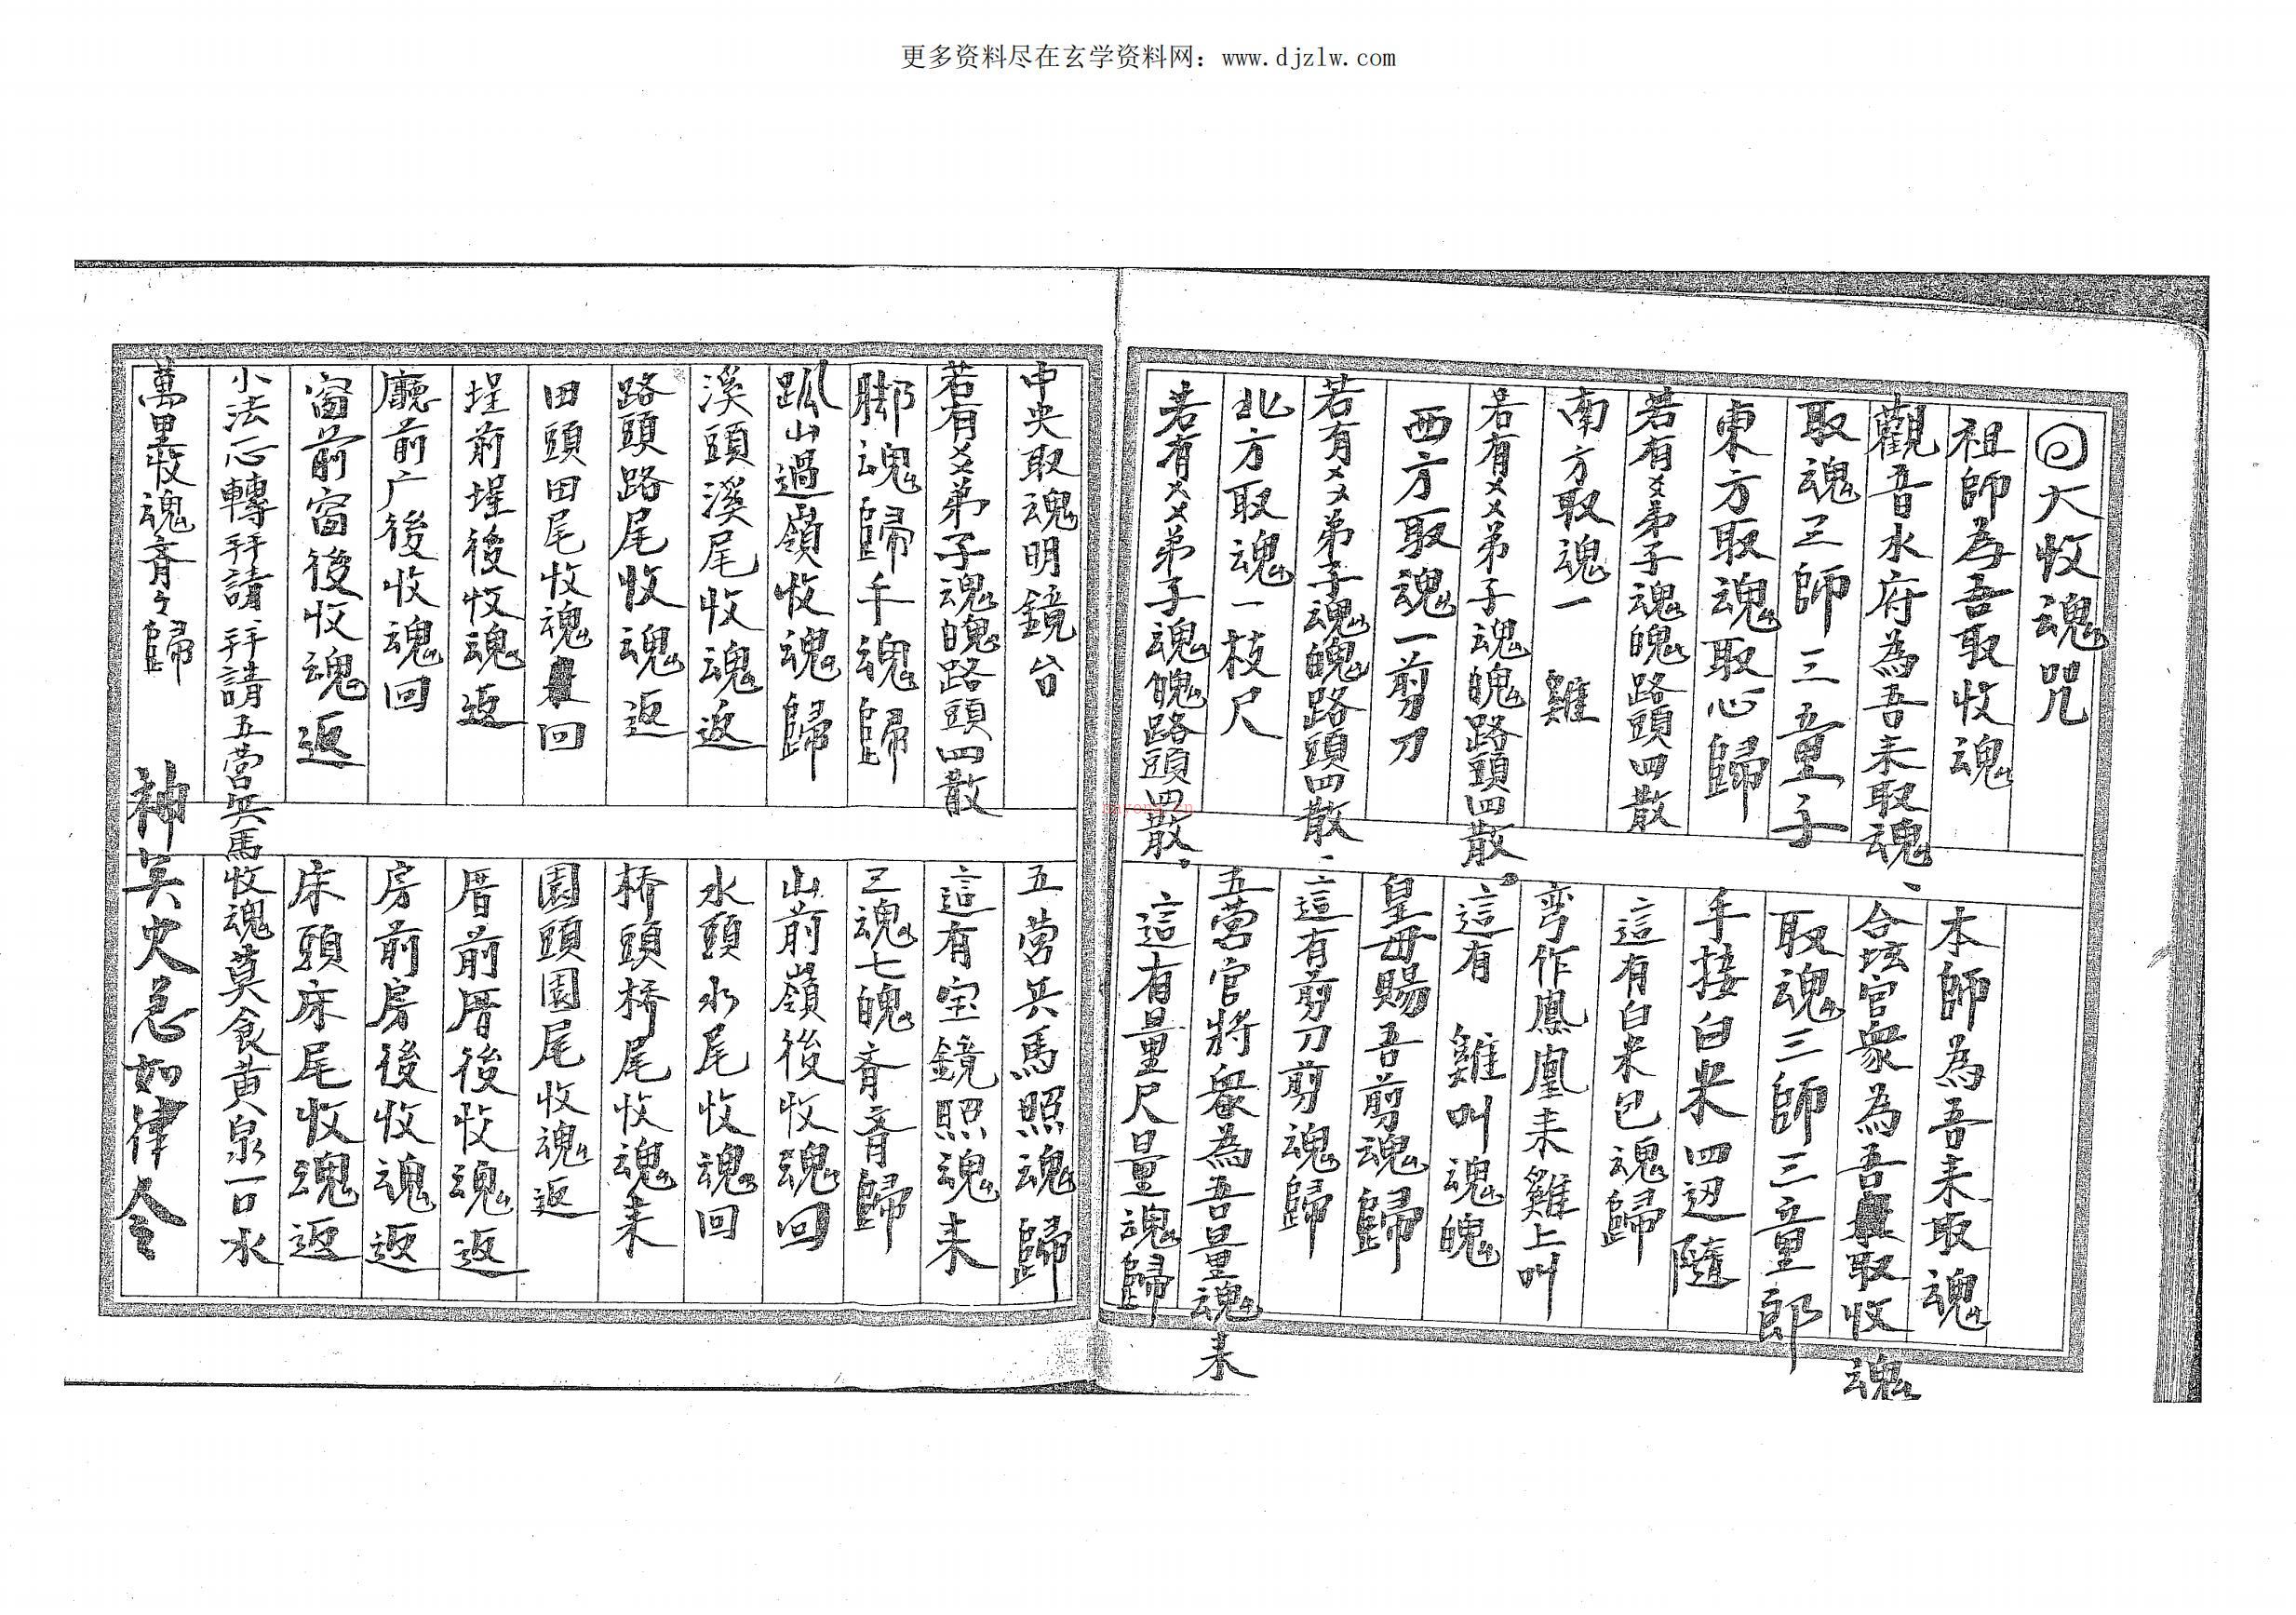 更多资料尽在玄学资料网：www.djzlw.com
大收魂咒
祖師為吾取收魂 本師為吾来取魂
觀音水府為吾来取魂、合坛官衆為吾取收魂
取魂三師三童子 取魂三師三童郎
東方取魂取心歸 手接白米四边隨
若有〤弟子魂魄路頭四散 這有白米包魂歸
南方取魂一 雞 弯作鳳凰来雞上叫
若有〤〤弟子魂魄路頭四散。這有 雞叫魂魄
西方取魂一剪刀 皇母賜吾剪魂歸
若有〤〤弟子魂魄路頭四散、這有剪刀剪魂歸
北方取魂一枝尺 五营官將衆為吾量魂来
若有〤〤弟子魂魄路頭四散、這有量尺量魂歸
中央取魂明鏡台 五营兵馬照魂歸
若有〤〤弟子魂魄路頭四散 這有宝鏡照魂来
脚魂歸手魂歸 三魂七魄斉斉歸
山過嶺收魂歸 山前嶺後收魂回
溪頭溪尾收魂返 水頭水尾收魂回
路頭路尾收魂返 桥頭桥尾收魂来
田頭田尾收魂回 園頭園尾收魂返
埕前埕後收魂返 厝前厝後收魂返
廳前广後收魂回 房前房後收魂返
窗前窗後收魂返 床頭床尾收魂返
小法心轉拜請、拜請五营兵馬收魂莫食黄泉一口水
萬里收魂斉々歸 神兵火急如律令